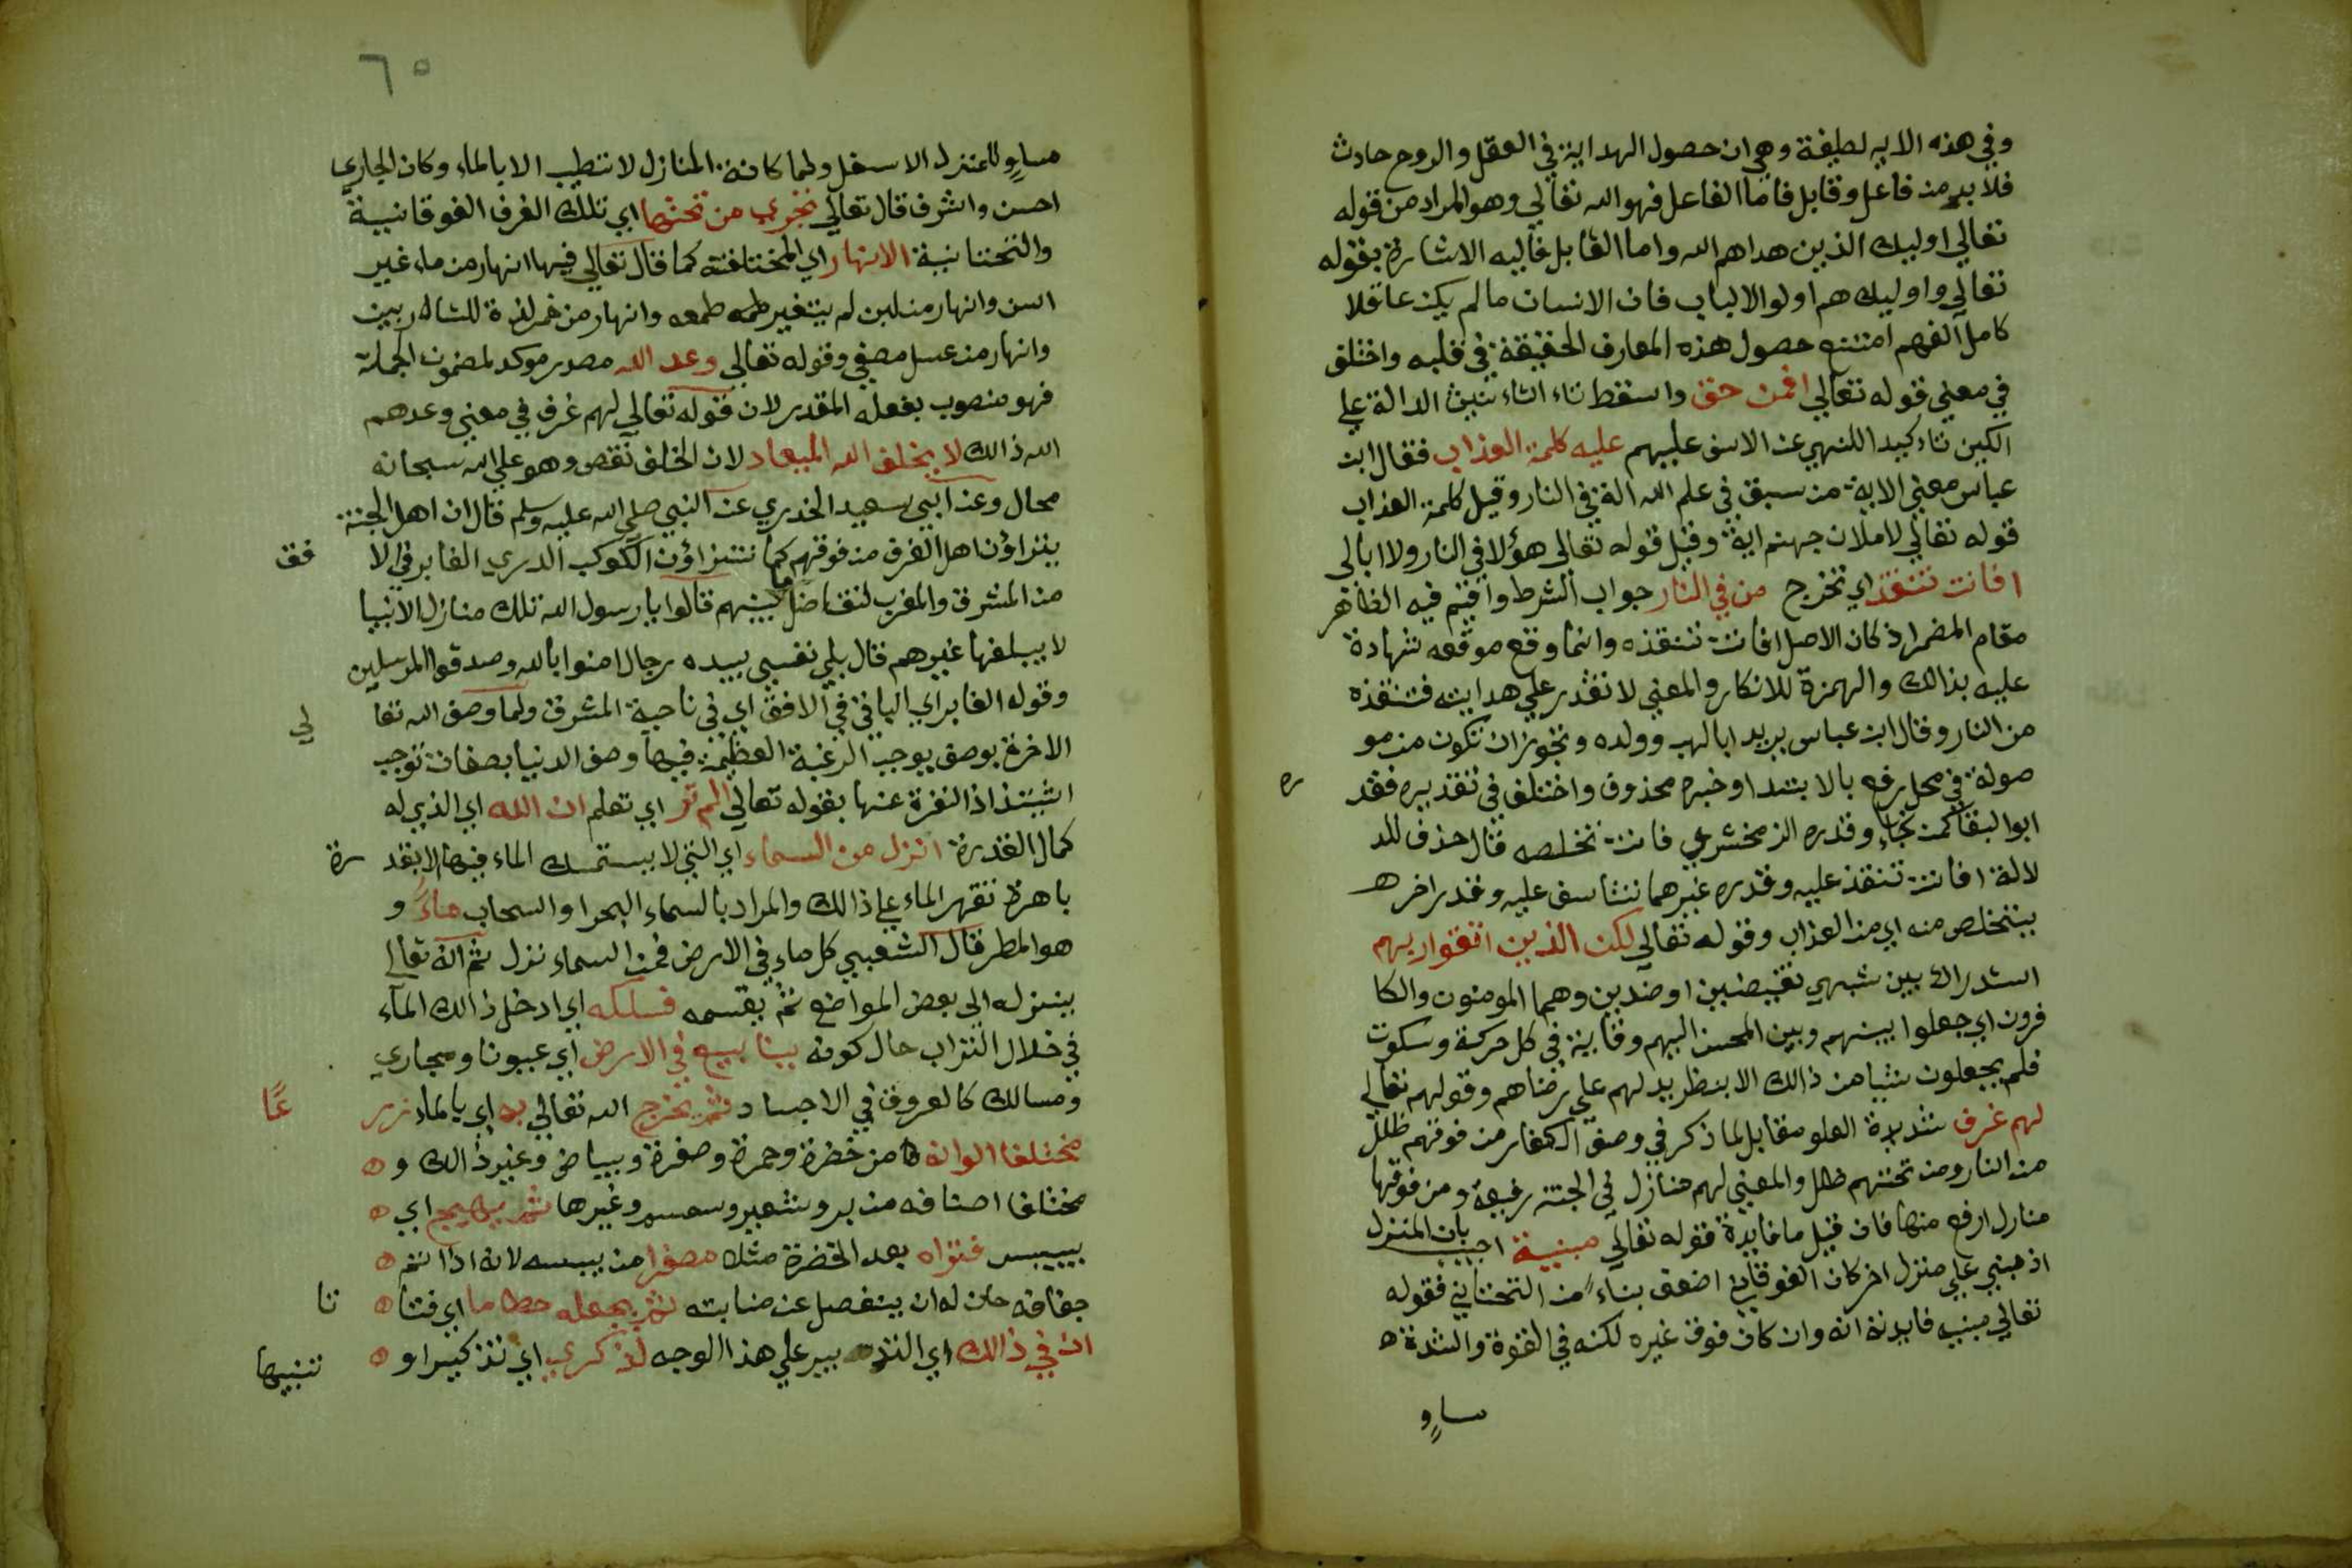 وفي هذه الايه لطيفة وهي ان حصول الهداية في العقل والروح حادث
فلا بد من فاعل وقابل فاما الفاعل فهو الله تعالي وهو المراد من قوله
تعالي اوليك الذين هداهم الله واما القابل فاليه الاشارة بقوله
تعالي واوليك هم اولوا الالباب فان الانسان ما لم يكن عاقلا
كامل الفهم امتنع حصول هذه المعارف الحقيقة في قلبه واختلف
في معني قوله تعالي افمن حق واسقط تاء التاء نيث الدالة علي
الكين تاء كيدا للنهي عن الاسف عليهم عليه كلمة العذاب فقال ابن
عباس معني الاية من سبق في علم الله انه في النار وقيل كلمة العذاب
قوله تعالي لاملان جهنم اية وقيل قوله تعالي هؤلا في النار ولا ابالي
افانت تنقذ اي تخرج من في النار جواب الشرط واقيم فيه الظاهر
مقام المضمر اذ كان الاصل افانت تنقذه وانما وقع موقعه شهادة
عليه بذالك والهمزة للانكار والمعني لا تقدر علي هدايته فتنقذه
من النار وقال ابن عباس يريد ابا لهب وولده وتجوز ان تكون من مو
صولة في محل رفع بالابتدا وخبره محذوف واختلف في تقديره فقد ره
ابو البقا كمن نجا وقدره الزمخشري فانت تخلصه قال حذف للد
لالة افانت تنقذ عليه وقدره غيرهما تتاسف عليه وقدر اخر
يتخلص منه اي من العذاب وقوله تعالي لكن الذين اتقوا ربهم
استدراك بين شبهي نقيضين او ضدين وهما المومنون والكا
فرون اي جعلوا بينهم وبين المحسن اليهم وقاية في كل حركة وسكون
فلم يجعلون شيا من ذالك الا بنظر يدلهم علي رضاهم وقولهم تعالي
لهم غرف شديدة العلو مقابل لما ذكر في وصف الكفار من فوقهم ظلل
من النار ومن تحتهم ظلل والمعني لهم منازل في الجنة رفيعة ومن فوقها
منارل ارفع منها فان قيل ما فايدة قوله تعالي مبنية اجيب بان المنزل
اذ مبني علي منزل اخر كان الفوقاني اضعف بناء من التحتاني فقوله
تعالي مبنيه فايدته انه وان كان فوق غيره لكنه في القوة والشدة
ساوٍ
٦٥
مساوٍ للمنزل الاسفل ولما كانة المنازل لا تطيب الا بالماء وكان الجاري
احسن واشرف قال تعالي تجري من تحتها اي تلك الغرف الفوقانية
والتحتانية الانهار اي المختلفة كما قال تعالي فيها انهار من ماء غير
اسن وانهار من لبن لم يتغير طعمه وانهار من خمر لذة للشاربين
وانهار من عسل مصفي وقوله تعالي وعد الله مصدر موكد لمضمون الجملة
فهو منصوب بفعله المقدر لان قوله تعالي لهم غرف في معني وعدهم
الله ذالك لا يخلف الله الميعاد لان الخلف نقص وهو علي الله سبحانه
محال وعن ابي سعيد الخدري عن النبي صلي الله عليه وسلم قال ان اهل الجنة
يتراؤن اهل الغرف من فوقهم كما تتراؤن الكوكب الدري الغابر في الا فق
من المشرق والمغرب لتفاضل ما بينهم قالوا يا رسول الله تلك منازل الانبيا
لا يبلغها غيرهم قال بلي نفسي بيده رجال امنوا بالله وصدقوا المرسلين
وقوله الغابر اي الباقي في الافق اي في ناحية المشرق ولما وصف الله تعا لي
الاخرة بوصف يوجب الرغبة العظيمة فيها وصف الدنيا بصفات توجب
اشتذاذ النفرة عنها بقوله تعالي الم تر اي تعلم ان الله اي الذي له
كمال القدرة انزل من السماء اي التي لا يستمسك الماء فيها الا بقد رة
باهرة تقهر الماء علي ذالك والمراد بالسماء البحر او السحاب ماء و
هو المطر قال الشعبي كل ماء في الارض فمن السماء نزل ثم انه تعالي
ينزله الي بعض المواضع ثم يقسمه فسلكه اي ادخل ذالك الماء
في خلال التراب حال كونه ينابيع في الارض اي عيونا ومجاري
ومسالك كالعروق في الاجساد ثم يخرج الله تعالي به اي بالماء زر عًا
مختلفا الوانه من خضرة وحمرة وصفرة وبياض وغير ذالك و
مختلفا اصنافه من بر وشعير وسمسم وغيرها ثم يهيج اي
ييبس فتراه بعد الخضرة مثلا مصفرا من يبسه لانه اذا تم
جفافه حان له ان ينفصل عن منابته ثم يجعله حطاما اي فتا تا
ان في ذالك اي التدبير علي هذا الوجه لذكري اي تذكيرا و تنبيها